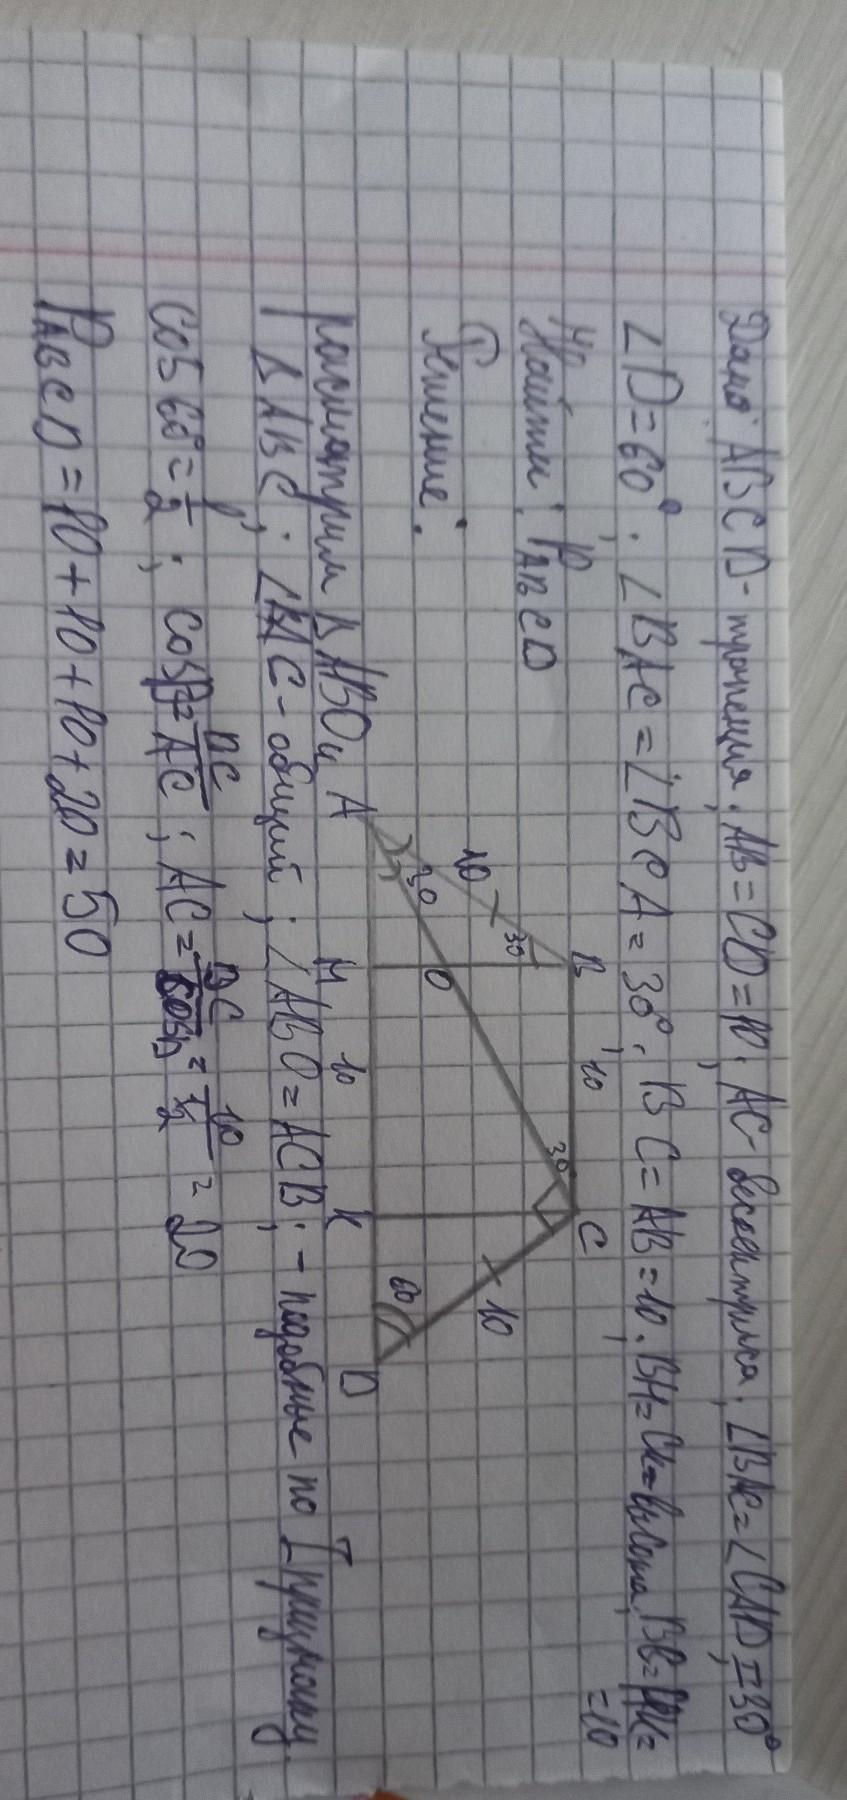 Дано: ABCD - трапеция, AB=CD=10, AC- биссектриса, ∠BAC=∠CAD=30°
∠D=60°, ∠BAC=∠BCA=30°, BC=AB=10, BH=CK=высота, BC=HK=
=10
Найти: P_ABCD
Решение:
B 10 C
10 30 30 10
30 O 60
A H 10 K D
рассмотрим ΔABO и
ΔABC; ∠BAC - общий; ∠ABO=ACB; - подобные по I признаку
cos 60°=1/2; cos D=DC/AC; AC=DC/cos D=10/(1/2)=20
P_ABCD=10+10+10+20=50